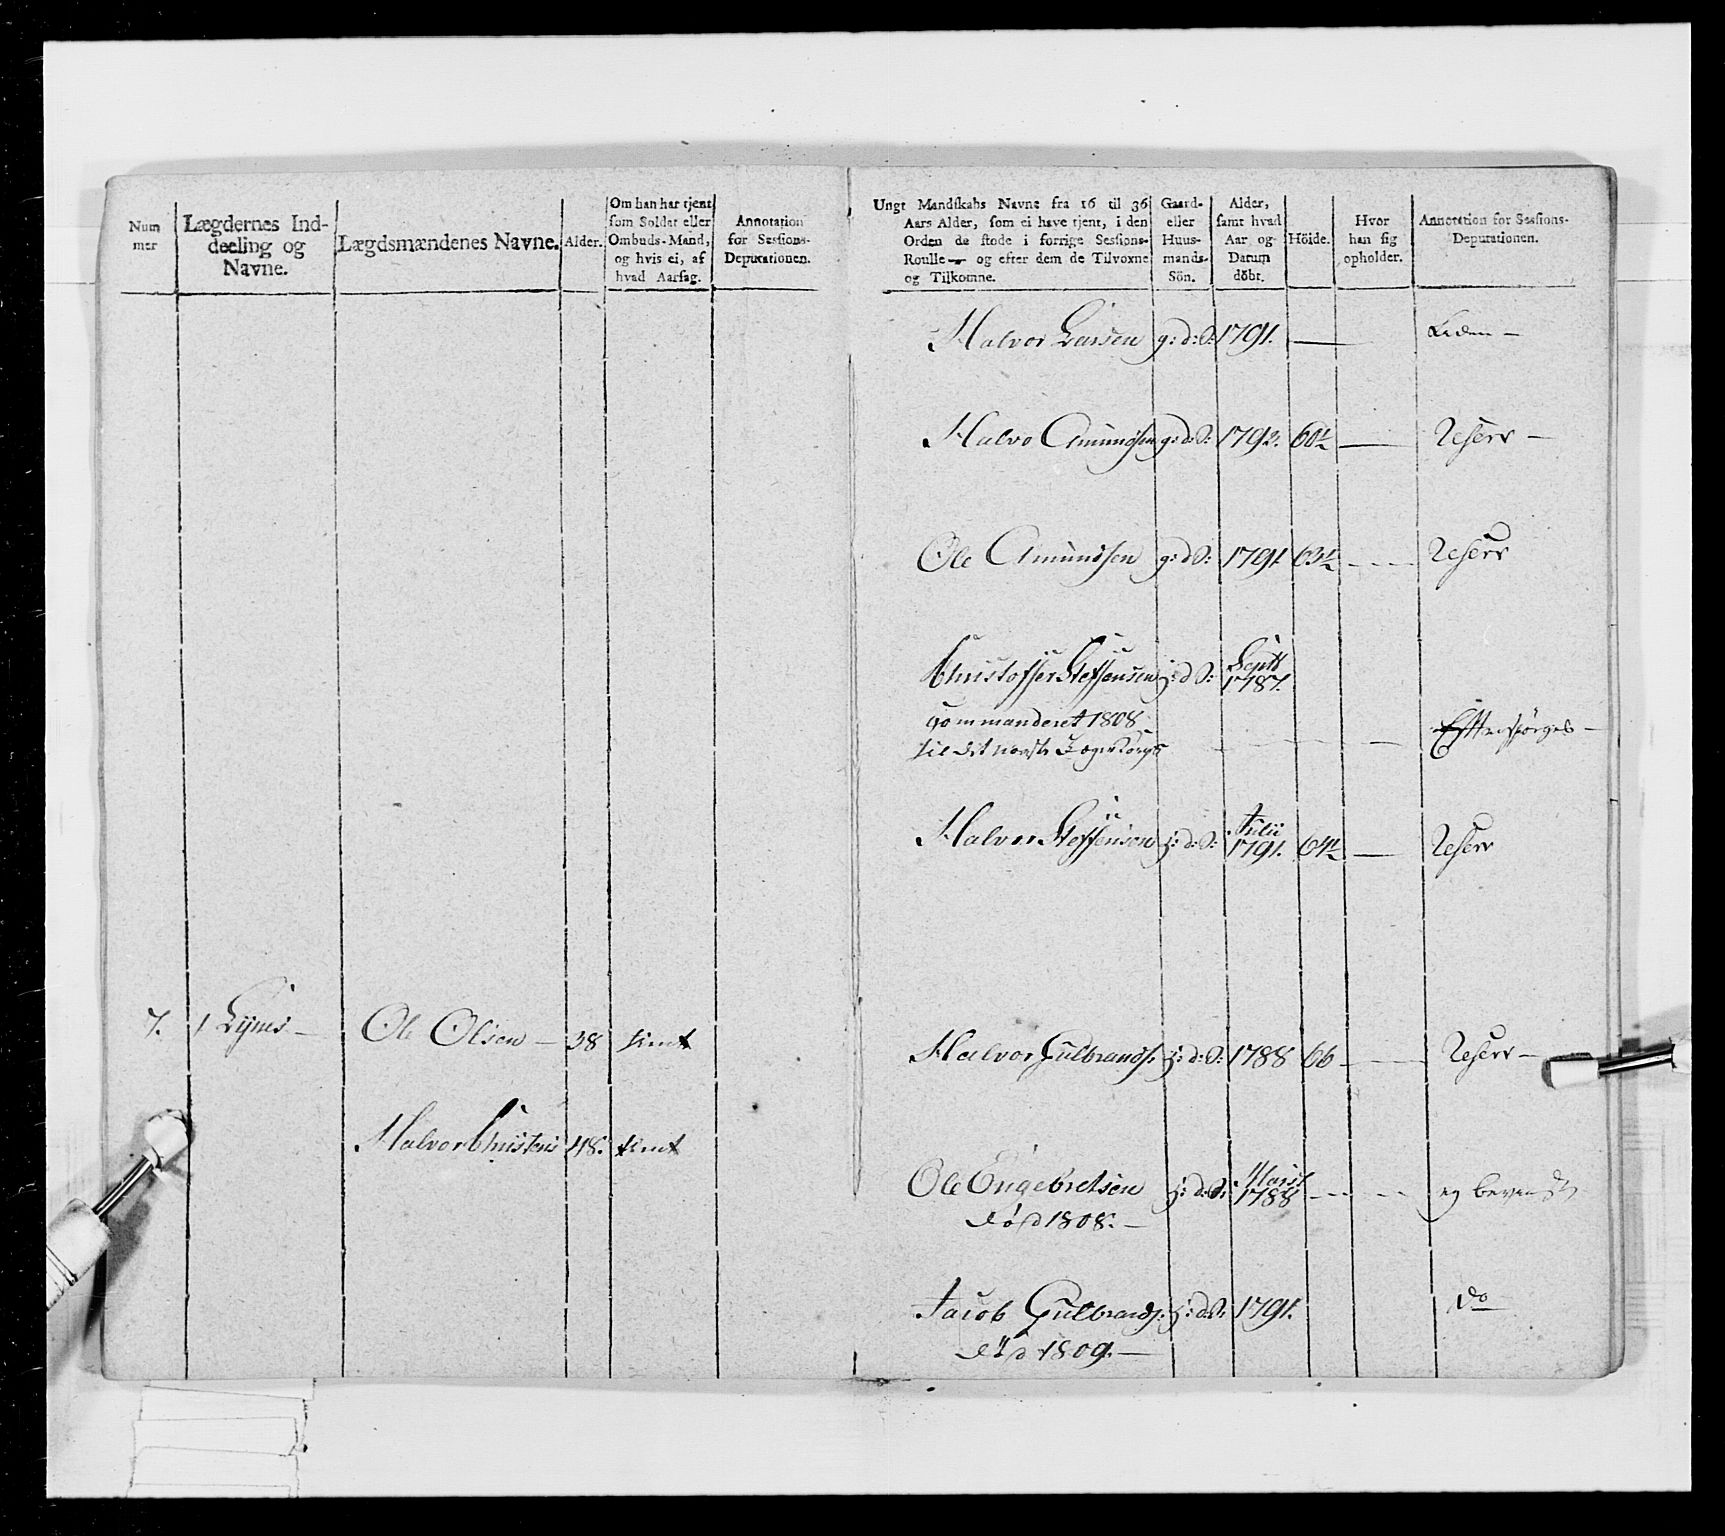 Num
mer
Lægdernes Ind-
deeling og
Navne.
Lægdsmændenes Navne.
Alder.
Om han har tjent
som Soldat eller
Ombuds-Mand,
og hvis ei, af
hvad Aarsag.
Annotation
for Sessions-
Deputationen.
7. 1 Lynes — Ole Olsen — 38 tient
Halvor Christens 48. tient
Ungt Mandskabs Navne fra 16 til 36
Aars Alder, som ei have tjent, i den
Orden de stode i forrige Sessions-
Roulle — og efter dem de Tilvoxne
og Tilkomne.
Gaard-
eller
Huus-
mands-
Sön.
Alder,
samt hvad
Aar og
Datum
döbt.
Höide.
Hvor
han sig
opholder.
Annotation for Sessions-
Deputationen.
Halvor Larsen g: d: S: 1791. — Liden —
Halvo Amundsen g: d: S: 1792. 60½ — Reserv —
Ole Amundsen g: d S: 1791 63½ — Reserv
Christoffer Steffensen j: d S: Septb 1787.
Commanderet 1808
til det norske Jægerkorps — Efterspörges —
Halvor Steffensen j: d: S: Julii 1791. 64½ — Reserv
Halvor Gulbrands. j: d: S: 1788 66 — Reserv —
Ole Engebretsen j: d: S: Marti 1788 — —
död 1808. —
Jacob Gulbrands. j: d: S: 1791. do
död 1809. —